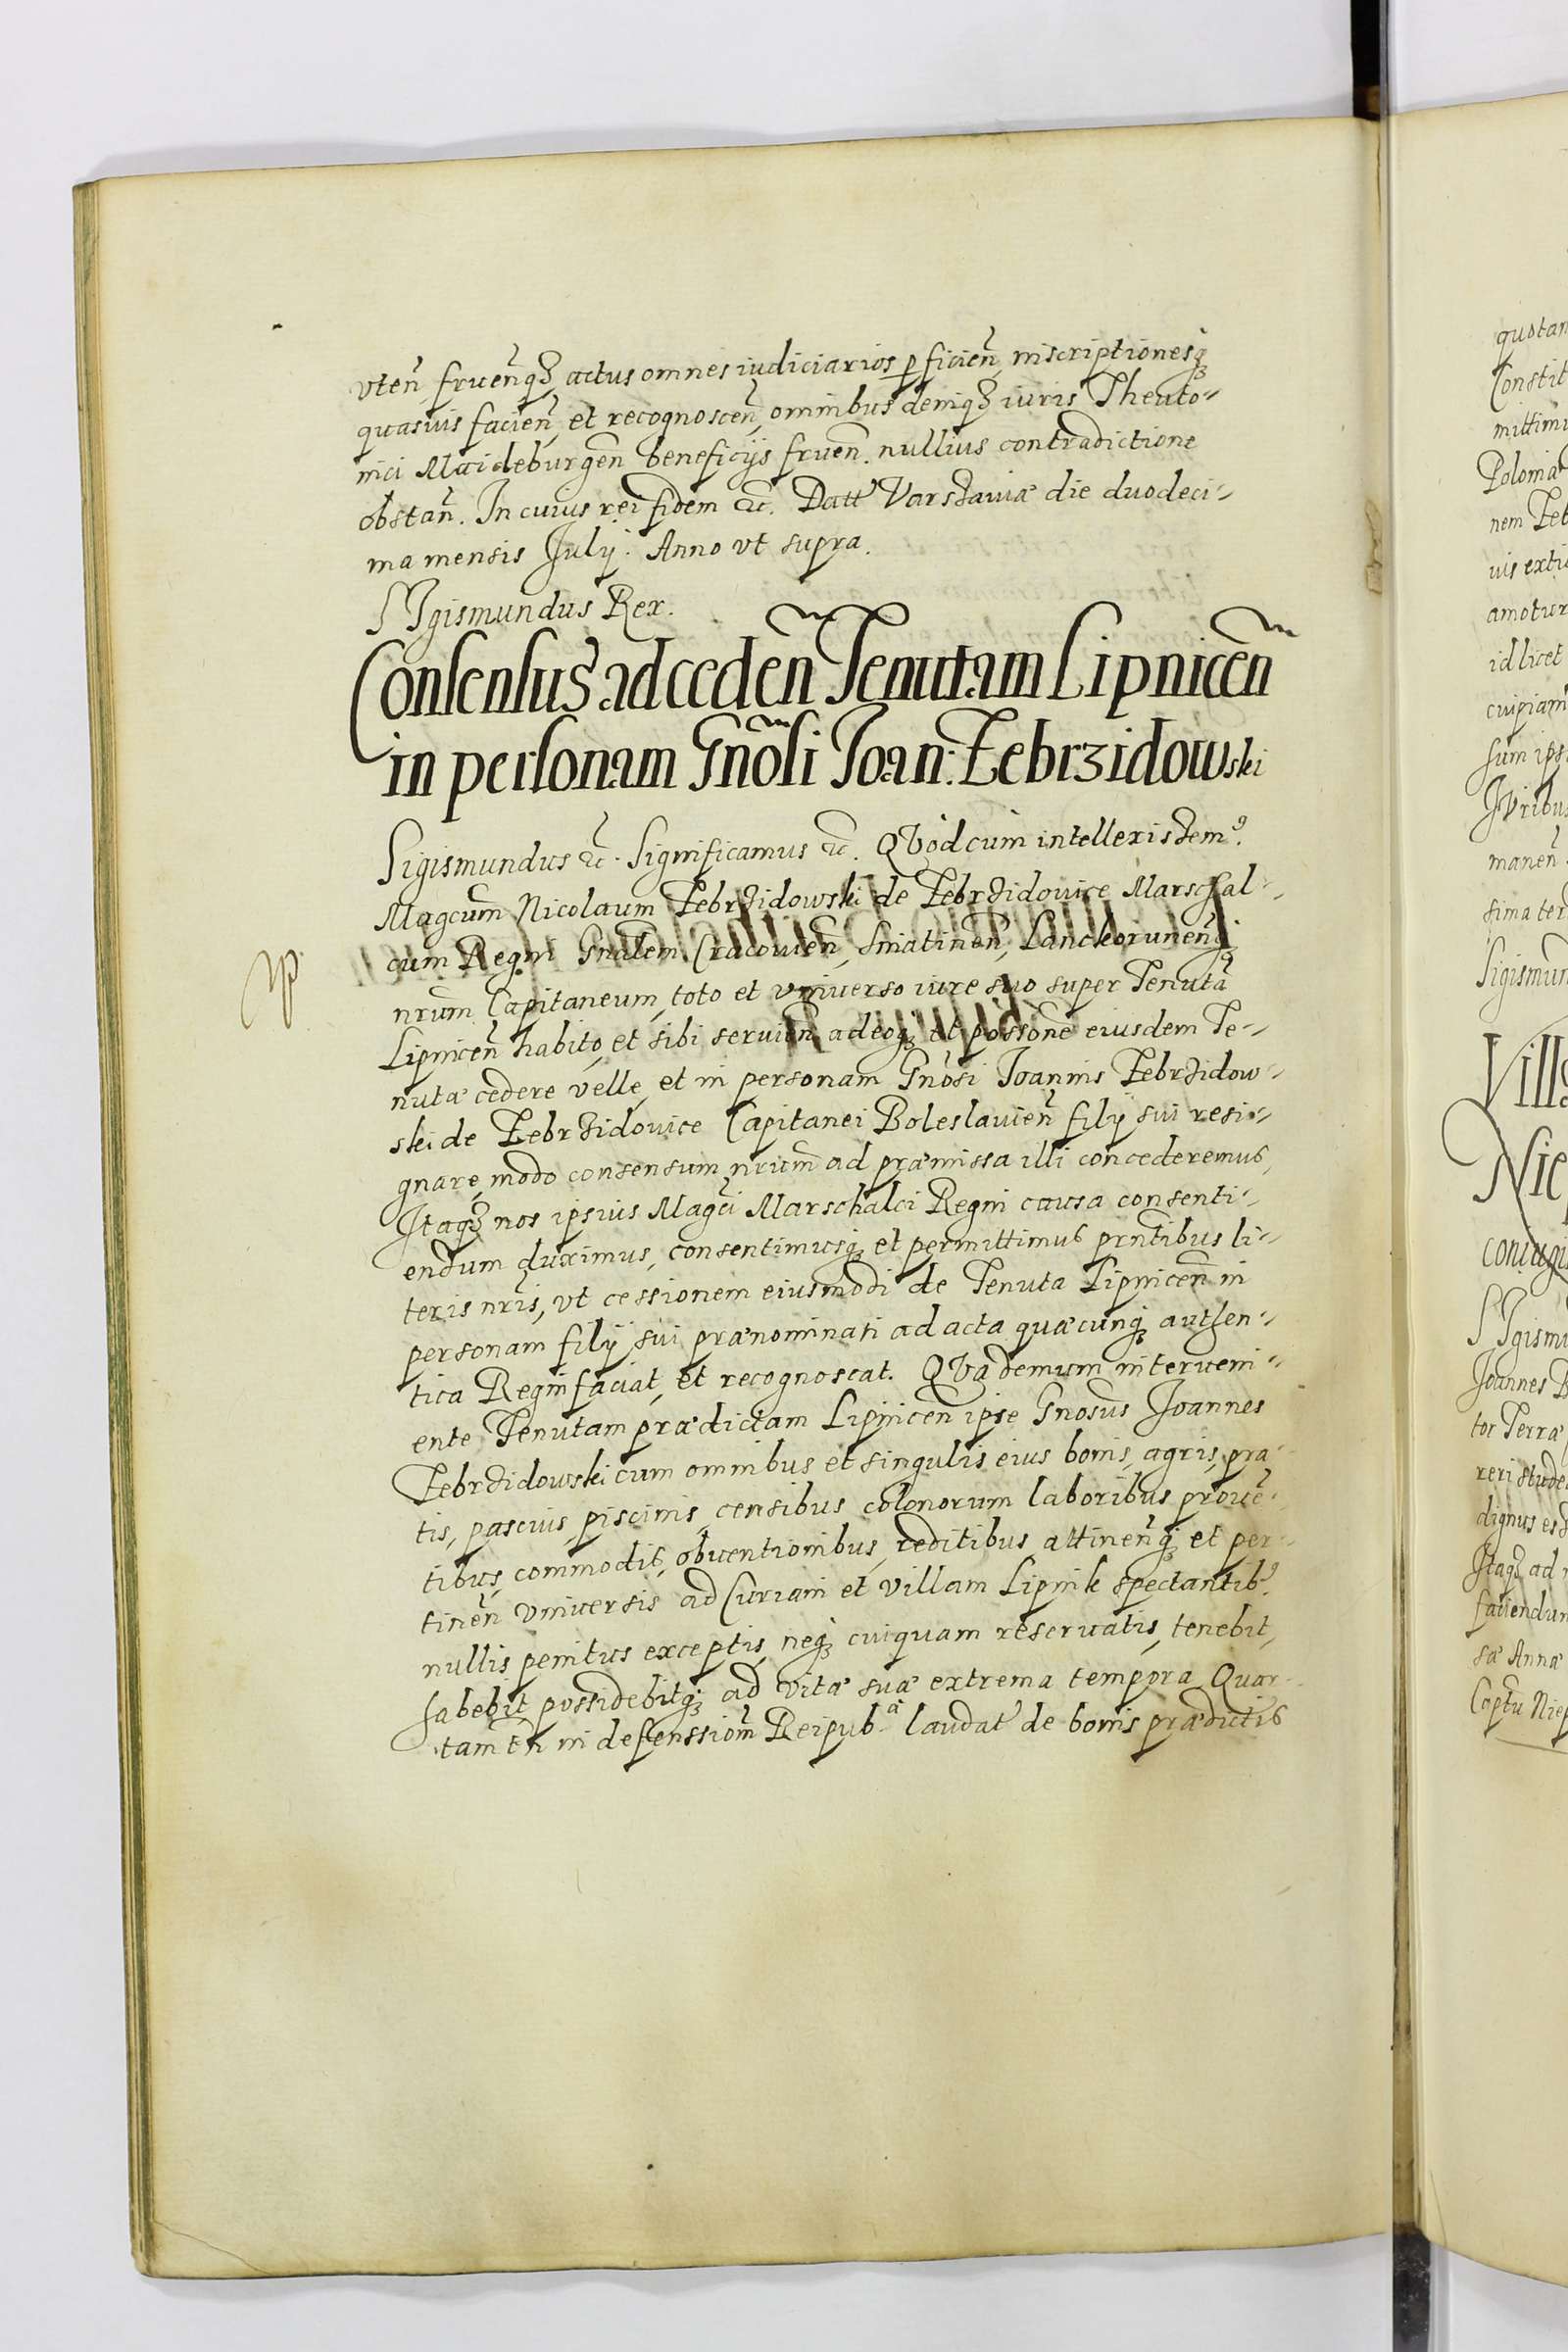 vten̄ fruen̄q3 actus omnes iudiciarios p ficien̄ inscriptionesq3
quasuis facien̄, et recognoscen̄, omnibus deniq3 iuris Theuto-
nici Maideburgen̄ beneficijs fruen̄. nullius contradictione
obstan̄. In cuius rei fidem &c. Datt Varssauiæ die duodeci-
ma mensis Julij. Anno vt supra.
SIgismundus Rex.
Consensus ad ceden̄ Tenutam Lipnicen̄
in personam Gn̄osi Joan: Zebrzidowski
Sigismundus &c. Significamus &c. QVòd cum intellexissem9.
Magcum Nicolaum Zebrzidowski de Zebrzidouice Marschal-
cum Regni Gn̄alem Cracouien̄, Sniatinen̄, Lanckorunen̄q3
nrum Capitaneum, toto et vniuerso iure suo super Tenuta
Lipnicen̄ habito, et sibi seruien̄ adeoq3 et possone eiusdem Te-
nutæ cedere velle, et in personam Gn̄osi Joannis Zebrzidow-
ski de Zebrzidouice Capitanei Boleslauien̄ filij sui resi-
gnare, modo consensum nrum ad præmissa illi concederemus,
Itaq3 nos ipsius Magci Marschalci Regni causa consenti-
endum duximus, consentimusq3 et permittimus prntibus li-
teris nris, vt cessionem eiusmodi de Tenuta Lipnicen̄ in
personam filij sui prænominati ad acta quæcunq3 authen-
tica Regni faciat, et recognoscat. QVa demum interueni-
ente Tenutam prædictam Lipnicen̄ ipse Gnosus Joannes
Zebrzidowski cum omnibus et singulis eius bonis, agris, pra-
tis, pascuis, piscinis, censibus, colonorum laboribus, prouē-
tibus, commodis, obuentionibus, reditibus attinen̄q3 et per-
tinen̄ vniuersis ad Curiam et villam Lipnik spectantib9.
nullis penitus exceptis, neq3 cuiquam reseruatis, tenebit,
habebit, possidebitq3 ad vitæ suæ extrema tempora. Quar-
tam tn̄ in defenssiom̄ Reipub.ᵃ laudat de bonis prædictis
quotan
Constit
mittimu
Poloniæ
nem Zeb
uis exti
id licet
cuipiam
sum ips
IVribus
manen̄
sima ter
Sigismun
Villa
Niep
coniugi
SIgismu
Joannes B
tor Terræ
reri stude
dignus es
Itaq3 ad
faciendum
sæ Annæ